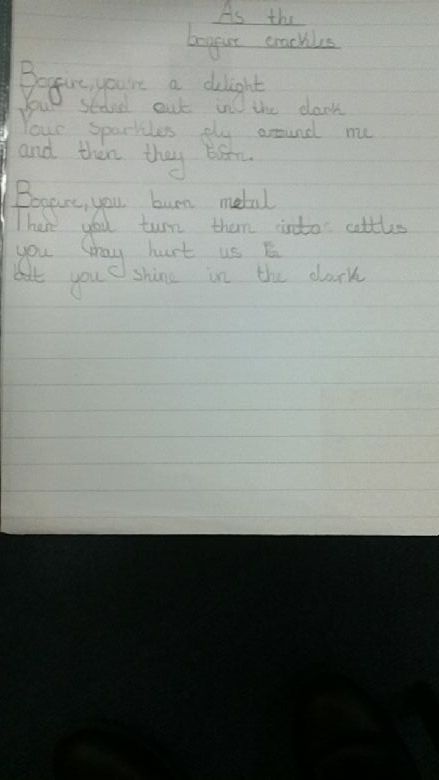 As the
bogfire crackles
Bogfire, you're a delight
You stand out in the dark
Your sparkles fly around me
and then they turn.
Bogfire, you burn metal
Then you turn them into cettles
you may hurt us
but you shine in the dark